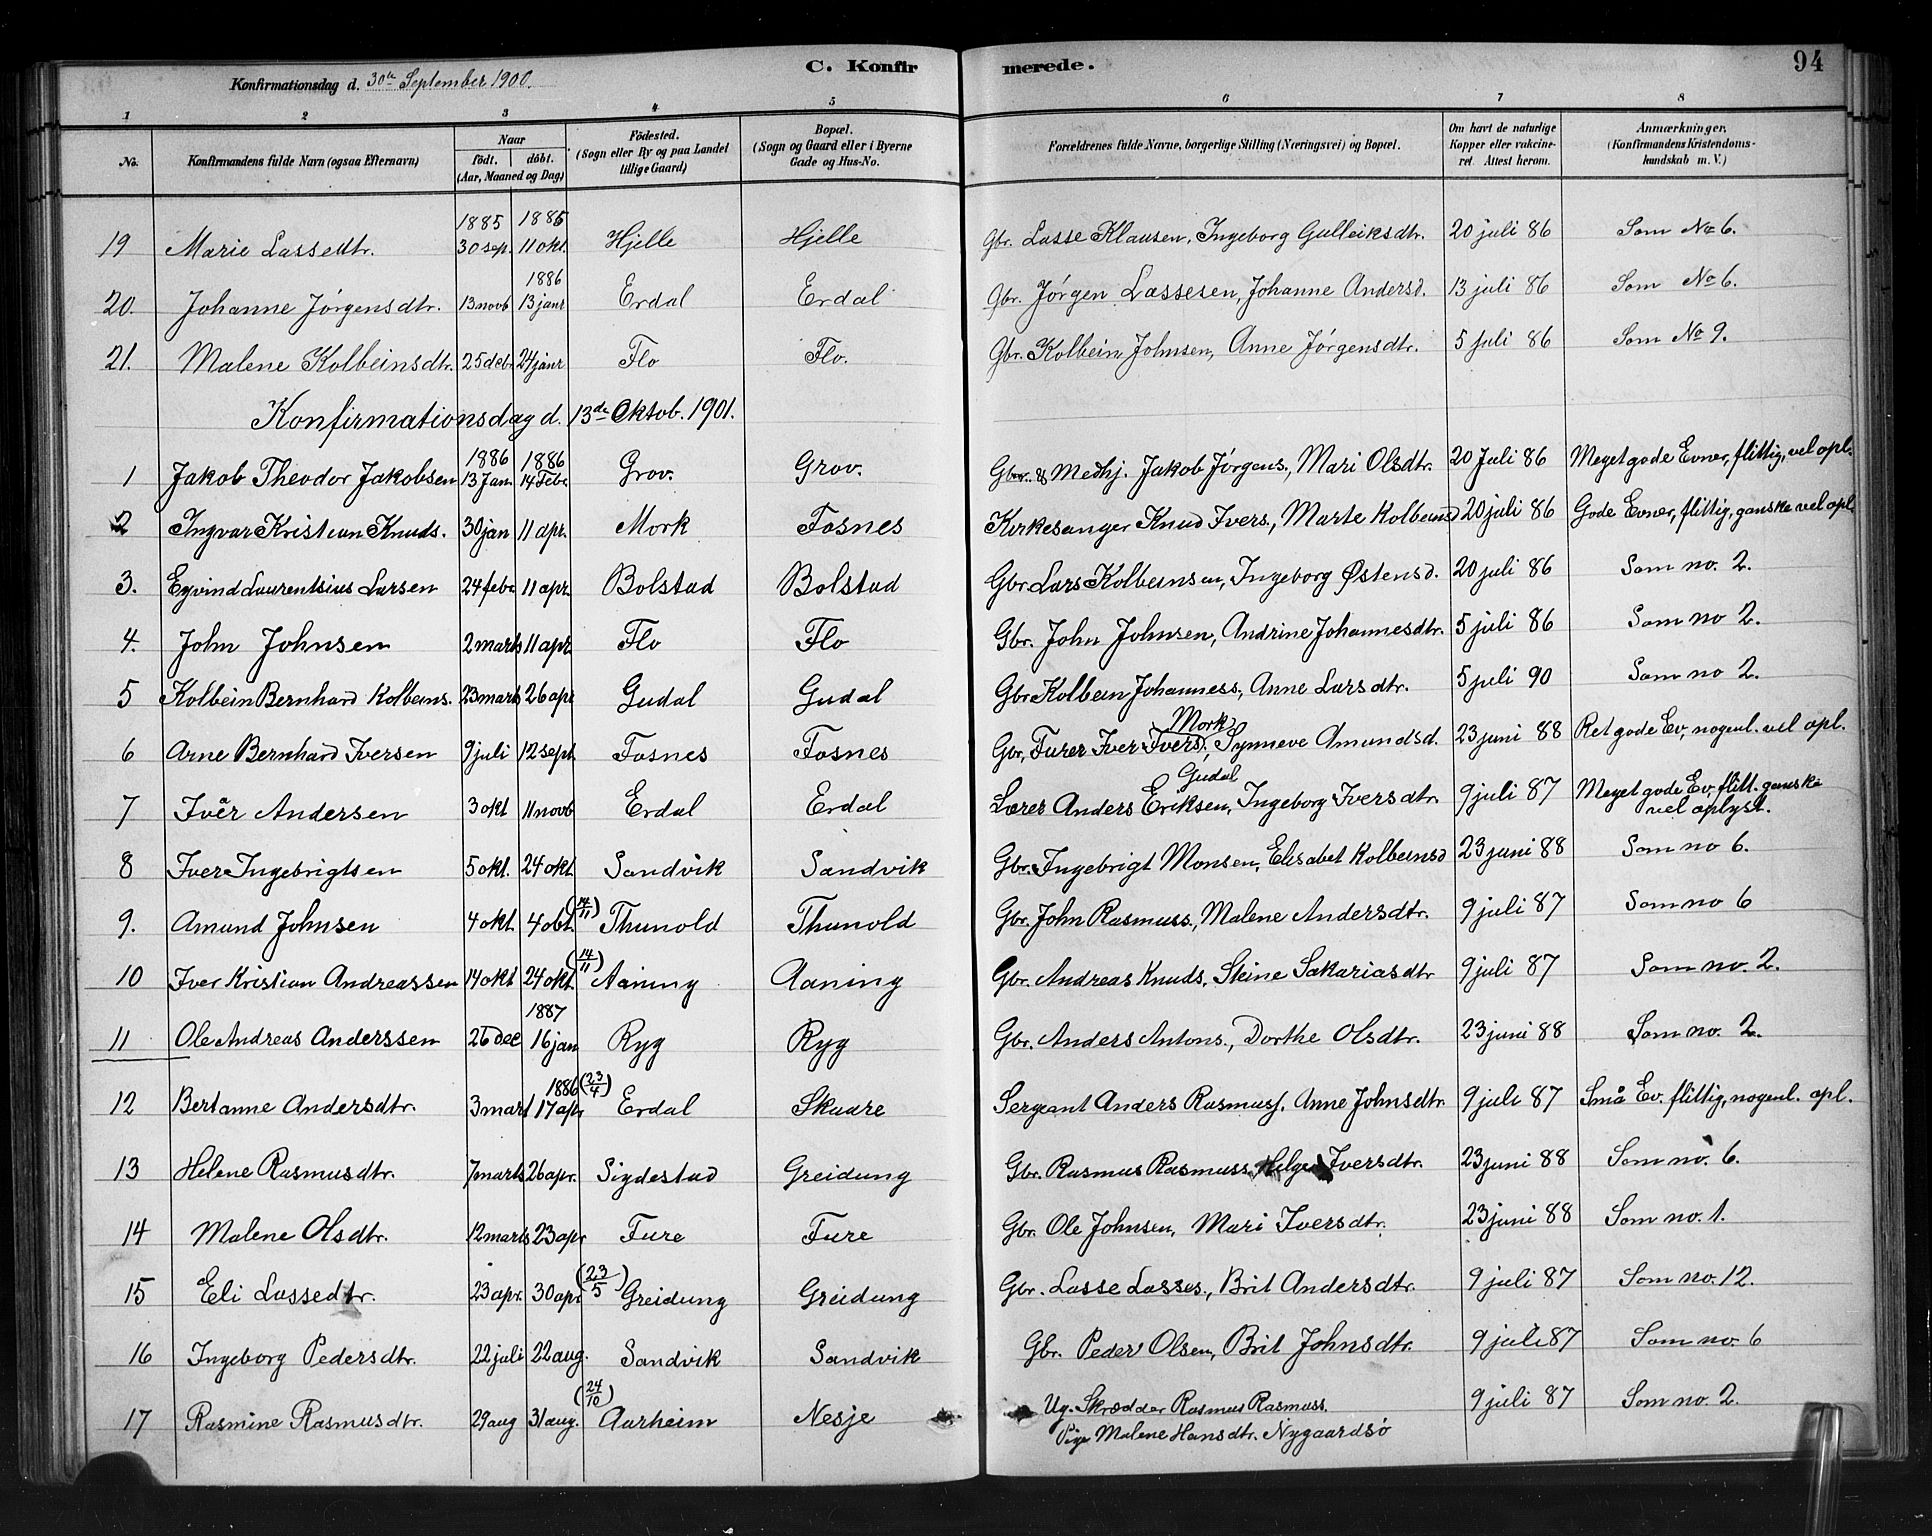 C. Konfirmerede. 94
Konfirmationsdag d. 30te September 1900.
1 2 3 4 5 6 7 8
No. Konfirmandens fulde Navn (ogsaa Efternavn) Naar födt. döbt. (Aar, Maaned og Dag) Födested. (Sogn eller By og paa Landet tillige Gaard) Bopæl. (Sogn og Gaard eller i Byerne Gade og Hus-No. Forældrenes fulde Navne, borgerlige Stilling (Næringsvei) og Bopæl. Om havt de naturlige Kopper eller vaccineret. Attest herom. Anmærkninger. (Konfirmandens Kristendomskundskab m. V.)
1885 1885
19 Marie Lassedtr. 30 sep. 11 okt. Hjelle Hjelle Gbr. Lasse Klausen, Ingeborg Gulleiksdtr. 20 juli 86 Som No 6.
1886
20. Johanne Jørgensdtr. 13 novb 13 janr Erdal Erdal Gbr. Jørgen Lassesen, Johanne Andersd. 13 juli 86 Som No 6.
21. Malene Kolbeinsdtr. 25 deb. 24 janr Flo Flo. Gbr. Kolbein Johnsen, Anne Jørgensdtr. 5 juli 86 Som No 9.
Konfirmationsdag d. 13de Oktob. 1901.
1886 1886
1 Jakob Theodor Jakobsen 13 Jan. 14 Febr Grov. Grov. Gbr. & Medhj. Jakob Jørgens., Mari Olsdtr. 20 Juli 86 Meget gode Evner, flittig, vel opl.
2 Ingvar Kristian Knuds. 30 jan 11 apr. Mork Fosnes Kirkesanger Knud Ivers., Marte Kolbeinsd 20 juli 86 Gode Evner, flittig, ganske vel opl.
3. Eyvind Laurentsius Larsen 24 febr 11 apr. Bolstad Bolstad Gbr. Lars Kolbeinsen, Ingeborg Østensd. 20 juli 86 Som no. 2.
4. John Johnsen 2 marts 11 apr. Flo Flo Gbr. John Johnsen, Andrine Johannesdtr. 5 juli 86 Som no 2.
5 Kolbein Bernhard Kolbeins. 23 marts 26 apr Gudal Gudal Gbr Kolbein Johanness., Anne Larsdtr. 5 juli 90 Som no 2.
Mork
6 Arne Bernhard Iversen 9 juli 12 sept. Fosnes Fosnes Gbr, Furer Iver Ivers. Synneve Amundsd. 23 juni 88 Ret gode Ev, nogenl. vel opl.
Gudal
7 Ivêr Andersen 3 okt 11 novb Erdal Erdal Lærer Anders Eriksen, Ingeborg Iversdtr. 9 juli 87 Meget gode Ev, flitt. ganske vel oplyst.
8 Iver Ingebrigtsen 5 okt. 24 okt Sandvik Sandvik Gbr. Ingebrigt Monsen, Elisabet Kolbeinsd 23 juni 88 Som no 6.
9. Amund Johnsen 4 okt. 4 obt. (14/11) Thunold Thunold Gbr. John Rasmuss., Malene Andersdtr. 9 juli 87 Som no 6
10 Iver Kristian Andreassen 14 okt 24 okt. (14/11) Aaning Aaning Gbr. Andreas Knuds, Steine Sakariasdtr 9 juli 87 Som no. 2.
1887
11 Ole Andreas Anderssen 26 Dec 16 jan Ryg Ryg Gbr. Anders Antons., Dorthe Olsdtr. 23 juni 88 Som no. 2.
1886 (23/4)
12 Bertanne Andersdtr. 3 mart 17 apr Erdal Skaare Sergeant Anders Rasmuss. Anne Johnsdtr. 9 juli 87 Små Ev. flittig, nogenl. opl.
13 Helene Rasmusdtr. 7 marts 26 apr. Sigdestad Greidung Gbr. Rasmus Rasmuss. Helge Iversdtr. 23 juni 88 Som no. 6.
14 Malene Olsdtr. 12 marts 23 apr Fure Fure Gbr. Ole Johnsen, Mari Iversdtr. 23 juni 88 Som no. 1.
15 Eli Lassedtr. 23 apr. 30 apr (23/5) Greidung Greidung Gbr. Lasse Lasses., Brit Andersdtr. 9 juli 87 Som no. 12.
16 Ingeborg Pedersdtr. 22 juli 22 aug. Sandvik Sandvik Gbr. Peder Olsen, Brit Johnsdtr. 9 juli 87 Som no. 6
17 Rasmine Rasmusdtr. 29 aug 31 aug. (24/10) Aarheim Nesje Ug. Skrædder Rasmus Rasmuss. 9 juli 87 Som no. 2.
Pige Malene Hansdtr. Nygaardsø